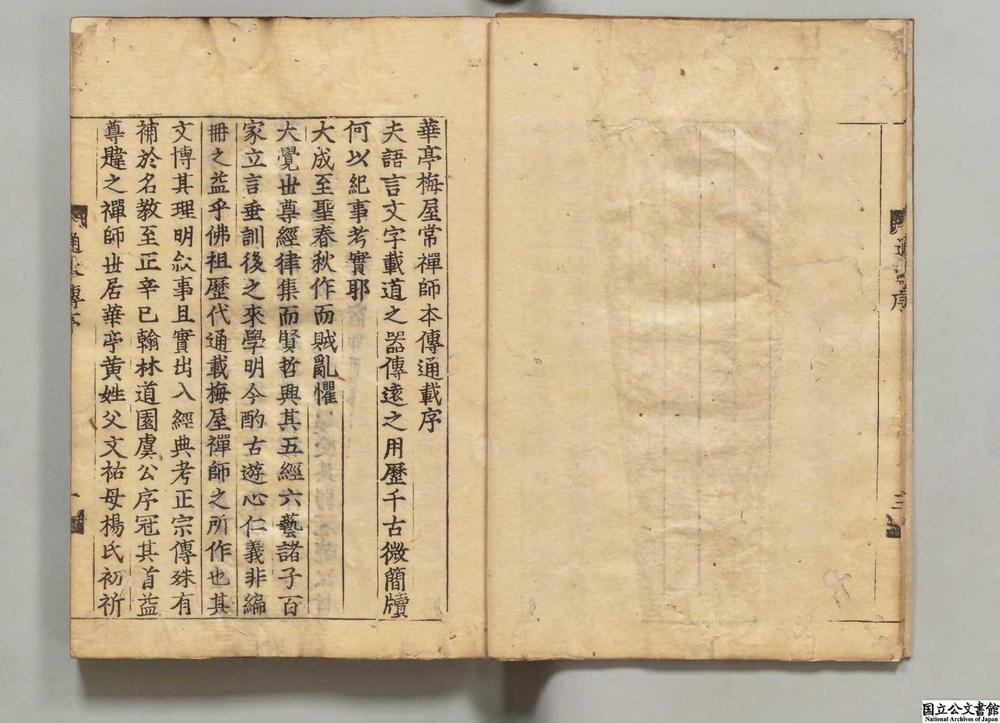 華亭梅屋常禪師本傳通載序
夫語言文字載道之器傳遠之用歷千古微簡牘
何以紀事考實耶
大成至聖春秋作而賊亂懼
大覺世尊經律集而賢哲興其五經六藝諸子百
家立言垂訓後之來學明今酌古遊心仁義非編
冊之益乎佛祖歷代通載梅屋禪師之所作也其
文博其理明敘事且實出入經典考正宗傳殊有
補於名教至正辛巳翰林道園虞公序冠其首益
尊韙之禪師世居華亭黃姓父文祐母楊氏初祈
通 序
三
通 傳序
一
国立公文書館
National Archives of Japan